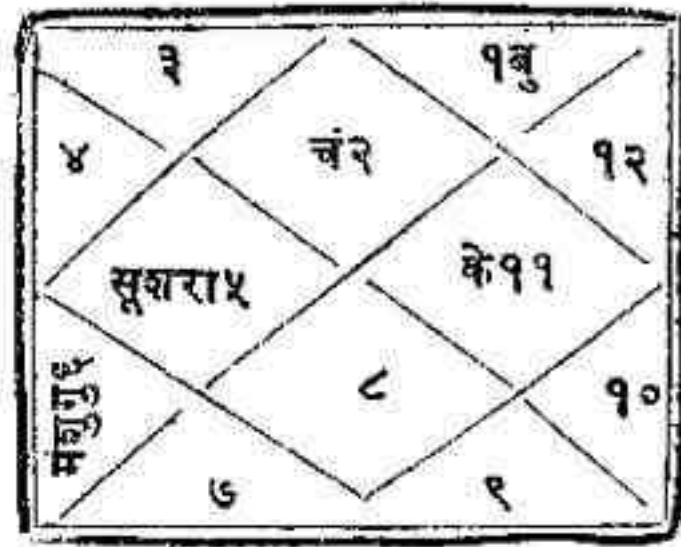 ३
१बु
४
चं२
१२
सूशरा५
के११
मंशुगु६
८
१०
७
९